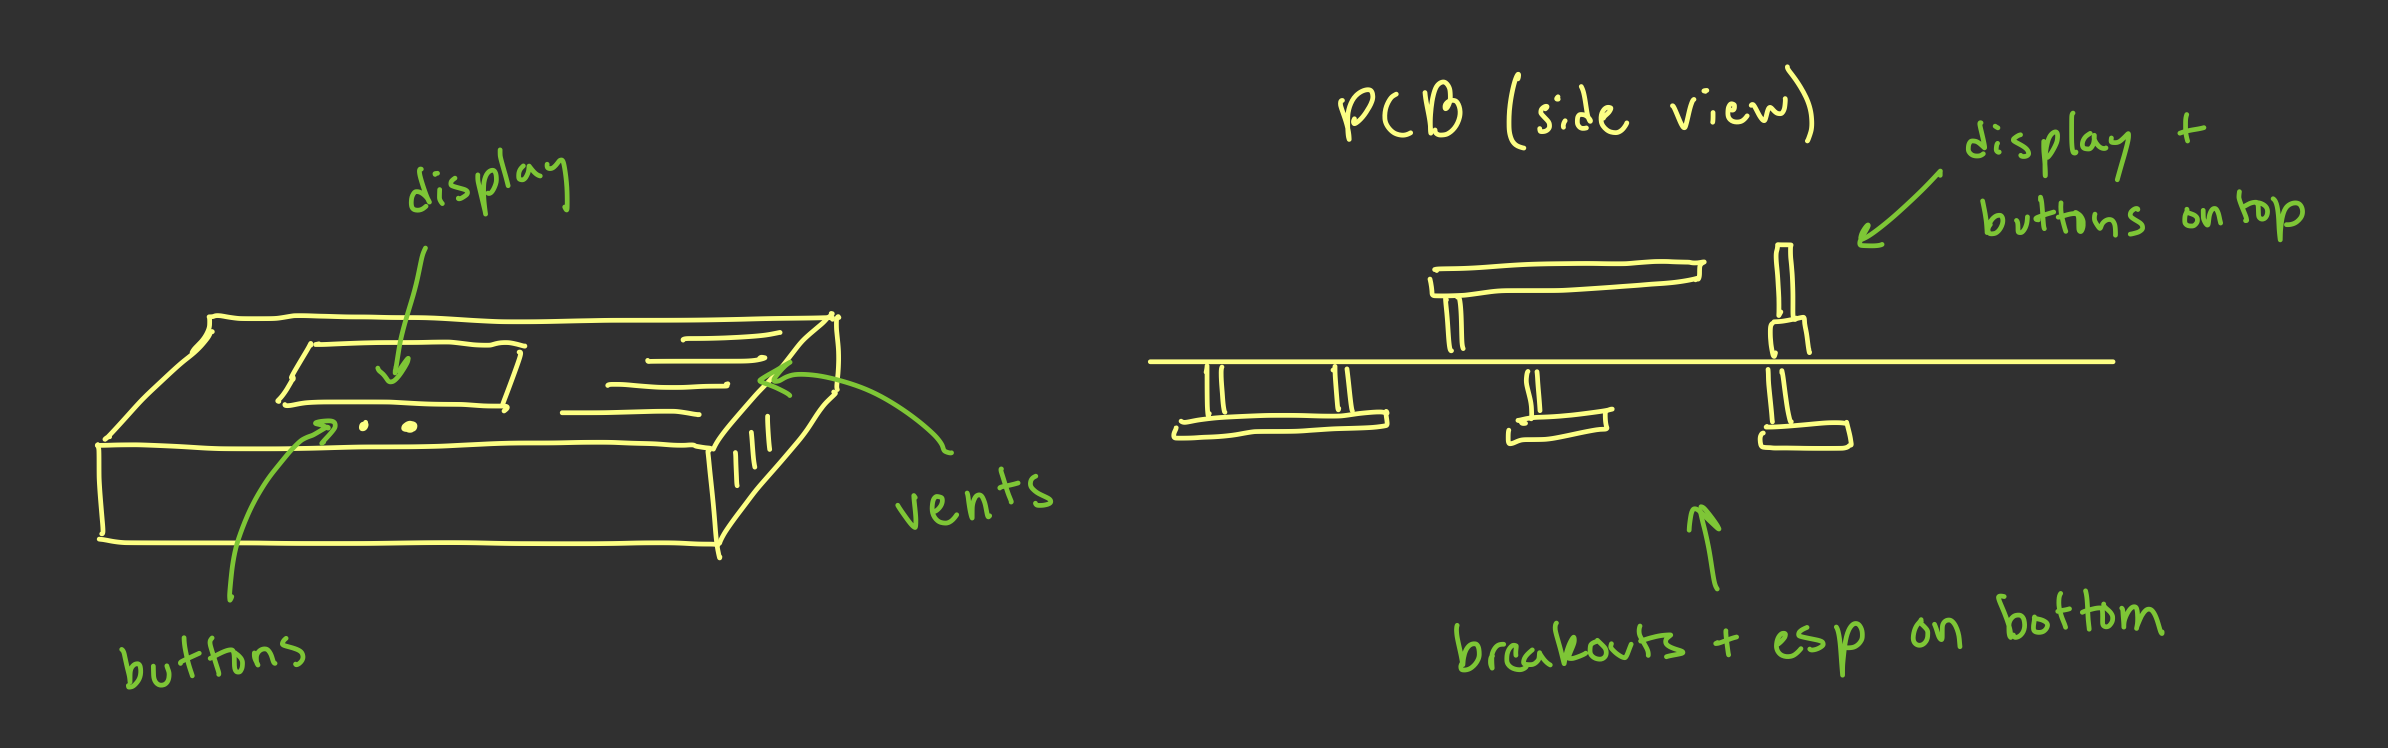 display
buttons
vents
PCB (side view)
display +
buttons on top
breakouts + esp on bottom